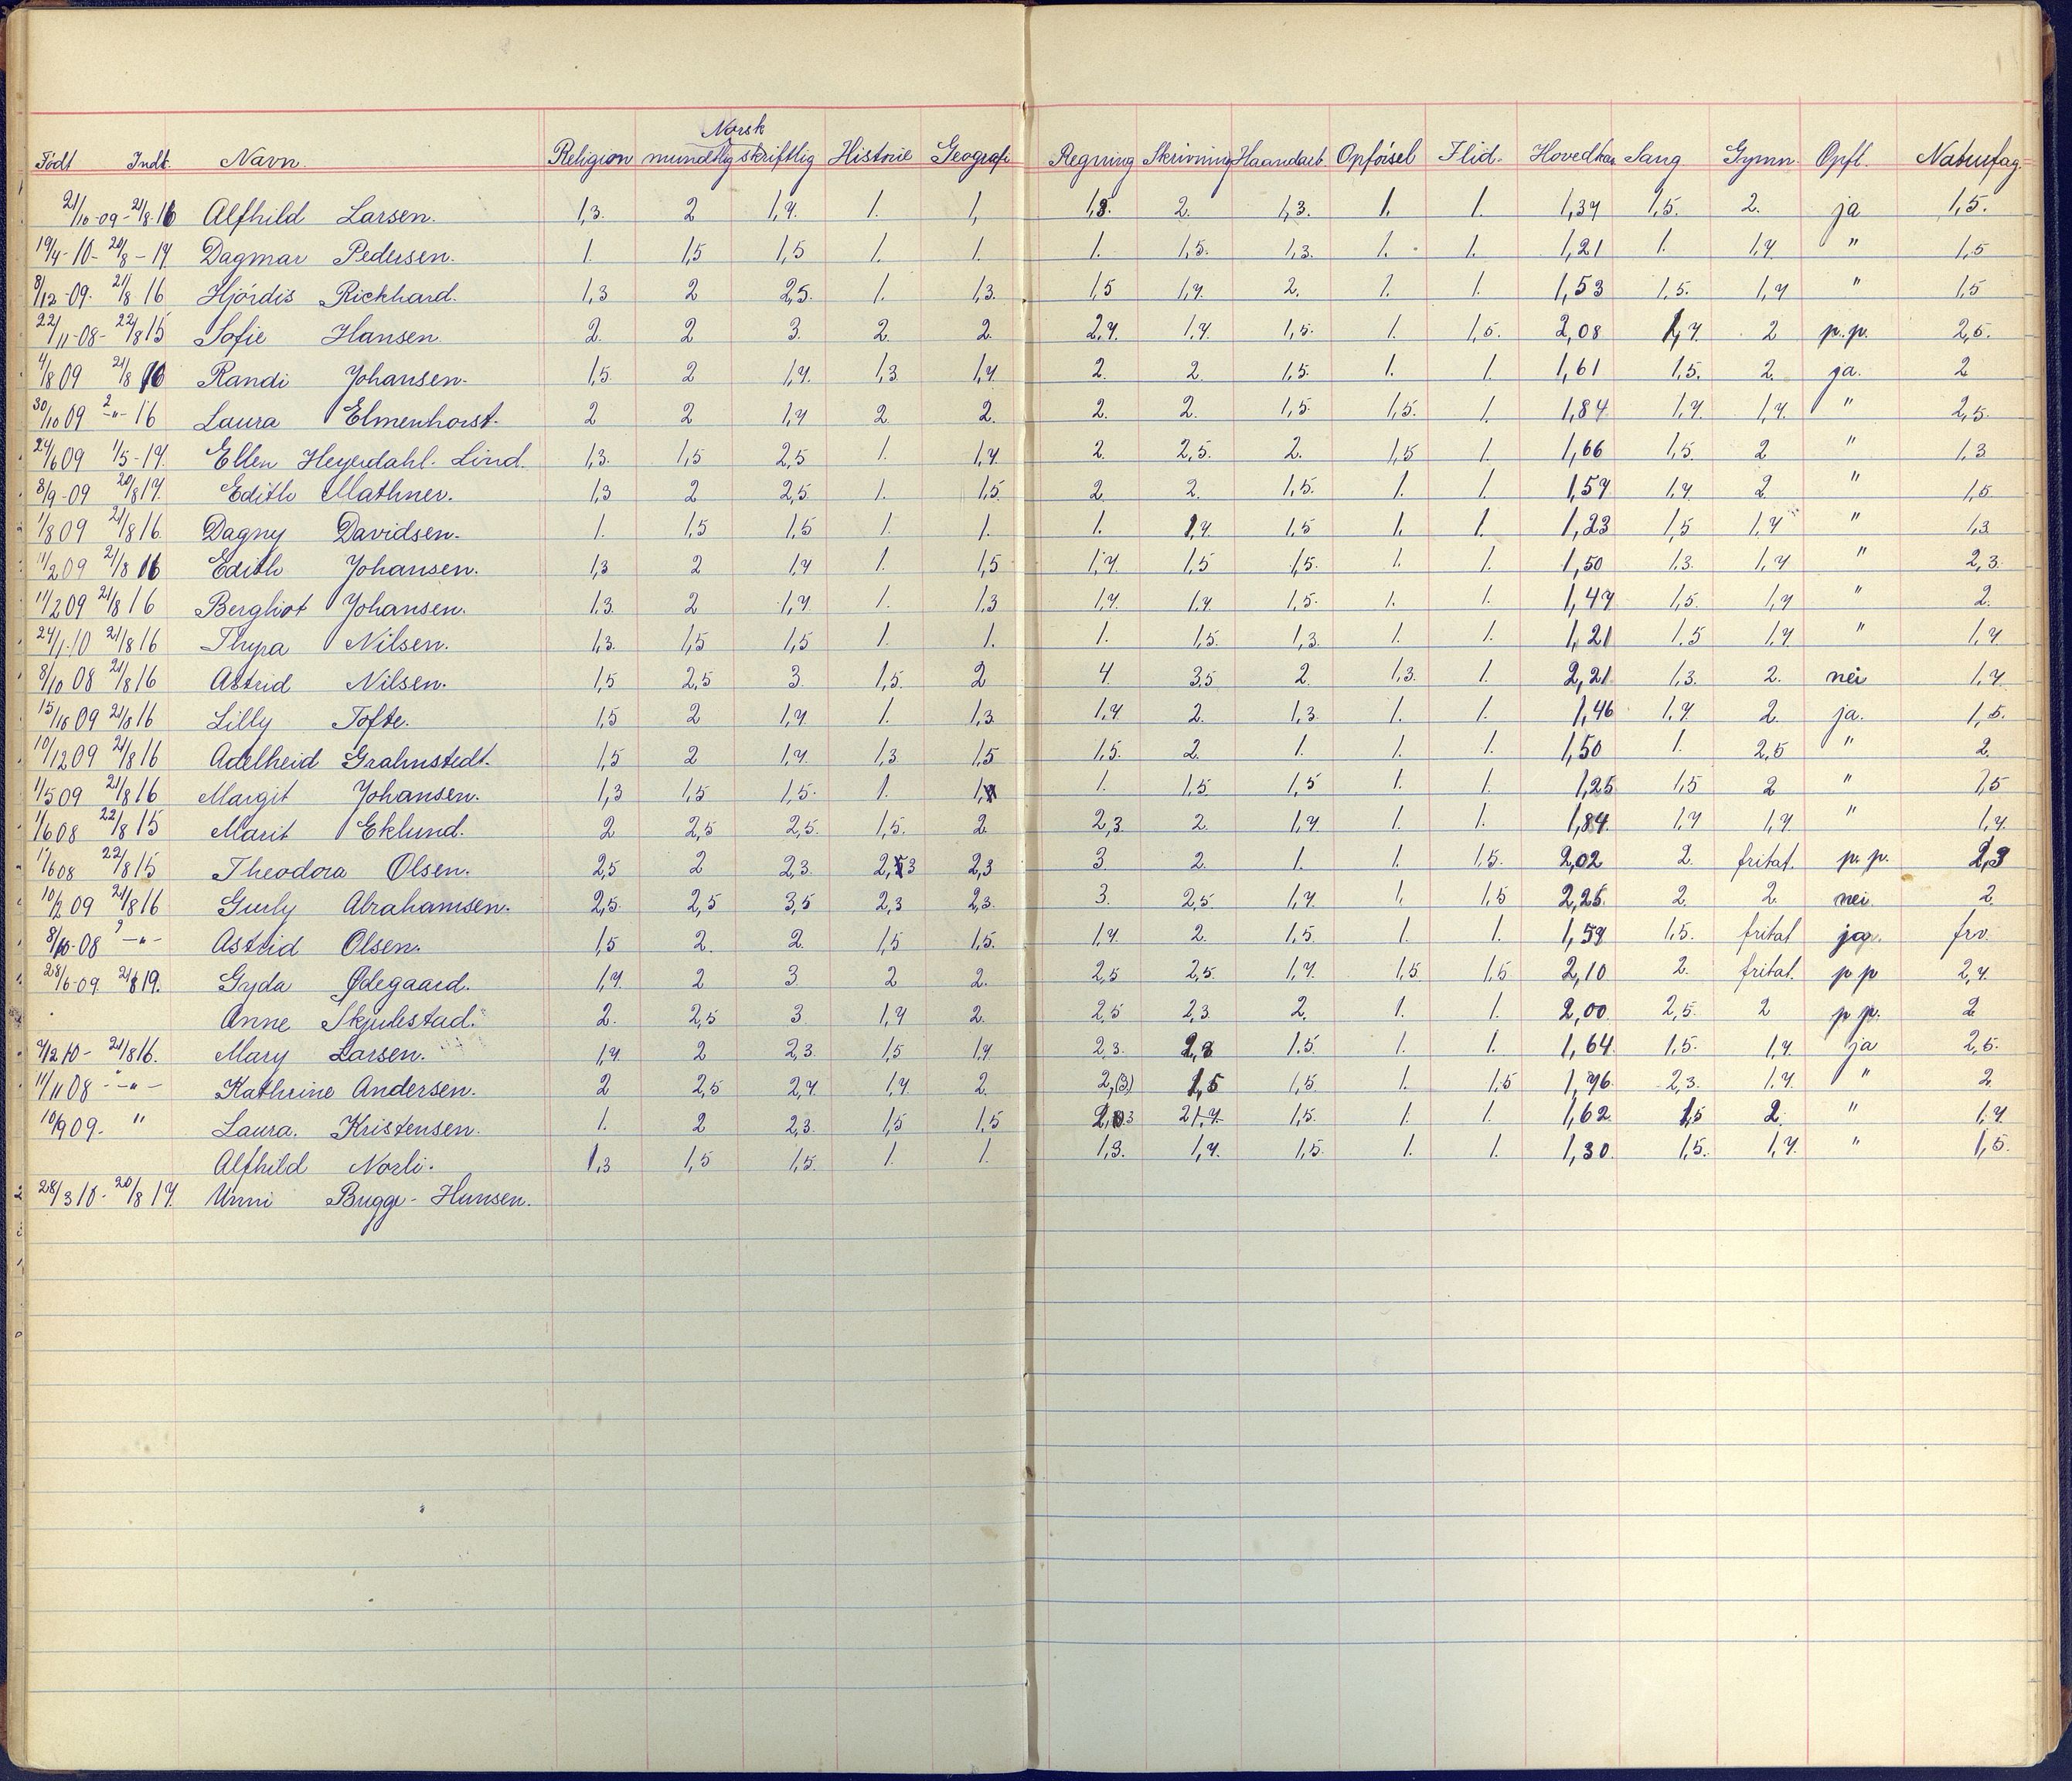 Født Indt. Navn. Religion Norsk mundtlig skriftlig Historie Geografi Regning Skrivning Haandarb. Opførsel Flid. Hovedkar. Sang Gymn. Opfl. Naturfag.
21/10-09-21/8 16 Alfhild Larsen. 1,3. 2 1,7. 1. 1, 1,3. 2. 1,3. 1. 1. 1,37 1,5. 2. ja 1,5.
19/4-10-20/8-17. Dagmar Pedersen. 1. 1,5 1,5 1. 1. 1. 1,5. 1,3. 1. 1. 1,21 1. 1,7. " 1,5
8/12-09. 21/8 16 Hjørdis Rickhard. 1,3 2 2,5. 1. 1,3. 1,5 1,7. 2. 1. 1. 1,53 1,5. 1,7 " 1,5
22/11-08-22/8 15 Sofie Hansen 2. 2 3. 2. 2. 2,7. 1,7. 1,5. 1. 1,5. 2,08 1,7. 2 p.p. 2,5.
4/8 09 21/8 16 Randi Johansen. 1,5. 2 1,7. 1,3 1,7. 2. 2. 1,5. 1. 1. 1,61 1,5. 2. ja. 2
30/10 09 -"- 16 Laura Elmenhorst. 2 2 1,7 2. 2. 2. 2. 1,5. 1,5. 1. 1,84 1,7. 1,7. " 2,5.
24/6 09 1/5-17. Ellen Heyerdahl. Lind. 1,3. 1,5 2,5 1. 1,7. 2. 2,5. 2. 1,5 1. 1,66 1,5. 2 " 1,3
8/9-09 20/8 17. Edith Mathner. 1,3 2 2,5. 1. 1,5. 2. 2. 1,5. 1. 1. 1,57 1,7 2. " 1,5
1/8 09 21/8 16. Dagny Davidsen. 1. 1,5 1,5 1. 1. 1. 1,7. 1,5 1. 1. 1,23 1,5 1,7 " 1,3
11/2 09 21/8 16 Edith Johansen. 1,3 2 1,7 1. 1,5 1,7. 1,5 1,5. 1. 1. 1,50 1,3. 1,7 " 2,3.
11/2 09 21/8 16 Bergliot Johansen. 1,3. 2 1,7. 1. 1,3 1,7. 1,7. 1,5. 1. 1. 1,47 1,5. 1,7 " 2.
24/1-10 21/8 16 Thyra Nilsen. 1,3. 1,5 1,5 1. 1. 1. 1,5. 1,3. 1. 1. 1,21 1,5 1,7. " 1,7.
8/10 08 21/8 16 Astrid Nilsen. 1,5 2,5 3. 1,5. 2 4. 3,5 2. 1,3. 1. 2,21 1,3. 2. nei 1,7.
09 21/8 16 Lilly Tofte. 1,5 2 1,7. 1. 1,3. 1,7. 2. 1,3. 1. 1. 1,46 1,7. 2. ja. 1,5.
10/12 09 21/8 16 Adelheid Gralmstedt. 1,5 2 1,7. 1,3. 1,5 1,5. 2. 1. 1. 1. 1,50 1. 2,5 " 2.
1/5 09 21/8 16 Margit Johansen. 1,3 1,5 1,5. 1. 1. 1,5 1,5 1. 1. 1,25 1,5 2 " 1,5
1/6 08 22/8 15 Marit Eklund. 2 2,5 2,5. 1,5. 2. 2,3. 2. 1,7. 1. 1. 1,84. 1,7 1,7. " 1,7.
08 22/8 15 Theodora Olsen. 2,5 2 2,3. 2,3 2,3 3. 2. 1. 1. 1,5. 2,02 2. fritat. p.p. 2,3
10/2 09 21/8 16 Gurly Abrahamsen. 2,5. 2,5 3,5 2,3 2,3. 3. 2,5. 1,7. 1. 1,5 2,25. 2. 2. nei. 2.
8/10-08 -"- Astrid Olsen. 1,5 2. 2. 1,5 1,5. 1,7. 2. 1,5. 1. 1. 1,59 1,5. fritat ja. frv.
28/6-09 21/8 19. Gyda Ødegaard. 1,7. 2 3. 2 2. 2,5 2,5. 1,7. 1,5 1,5 2,10 2. fritat. p p 2,7.
Anne Skjulestad. 2. 2,5 3. 1,7 2. 2,5 2,3 2. 1. 1. 2,00. 2,5. 2 p p. 2
10- 21/8 16. Mary Larsen. 1,7. 2 2,3. 1,5 1,7 2,3. 2,3 1,5. 1. 1. 1,64. 1,5. 1,7. ja 2,5.
11/11 08 -"- Kathrine Andersen. 2 2,5 2,7. 1,7. 2. 2,(3) 1,5 1,5. 1. 1,5 1,76. 2,3. 1,7. " 2.
10/9 09. " Laura. Kristensen. 1. 2 2,3. 1,5 1,5 1,5. 1. 1. 1,62. 1,5 2. " 1,7
Alfhild Norli. 1,3 1,5 1,5. 1. 1. 1,3. 1,7. 1,5. 1. 1. 1,30. 1,5. 1,7. " 1,5.
28/3 10-20/8 17. Unni Bugge-Hansen.